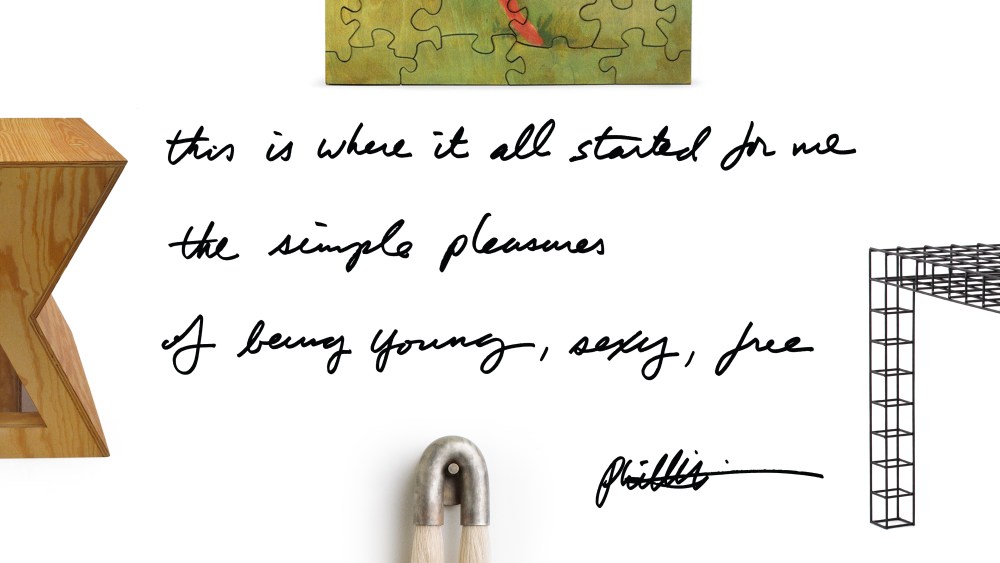 this is where it all started for me
the simple pleasures
of being young, sexy, free
phillis